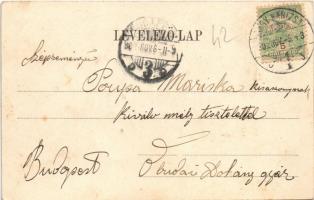 42
LEVELEZŐ-LAP
Szépreményű
Porpa Mariska kisasszonynak
kiváló mély tisztelettel
Budapest Óbudai Dohány gyár